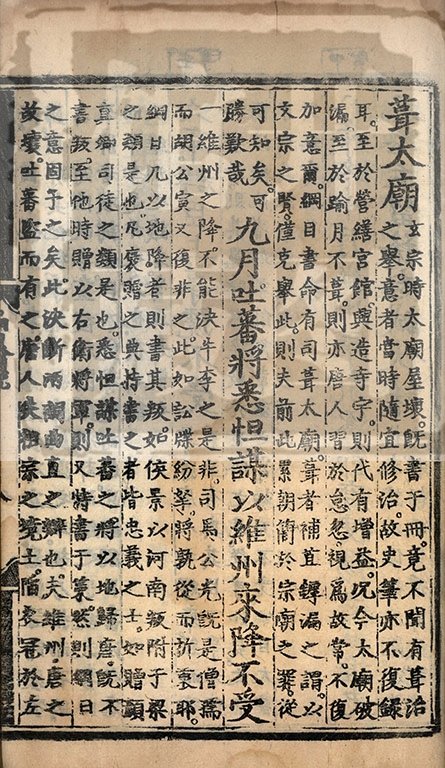 葺太廟
玄宗時太廟屋壞。既書于冊。竟不聞有葺治
之舉。意者當時隨宜修治。故史筆亦不復錄
耳。至於營繕宮館興造寺宇。則代有增益。况今太廟破
漏。至於踰月不葺。則亦唐人習於怠忽視爲故常。不復
加意爾。綱目書命有司葺太廟。葺者補苴罅漏之謂。以
文宗之賢。僅克舉此。則夫前此累朝於宗廟之槩。從
可知矣。可
勝歎哉
九月吐蕃將悉怛謀以維州來降不受
一維州之降。不能決牛李之是非。司馬公光既是僧孺
而胡公寅又復非之。此如訟牒紛挐。將孰從而折衷耶。
綱目凡以地降者則書其叛。如侯景以河南叛附于梁
之類是也。凡褒贈之典特書之者皆忠義之士。如贈顔
真卿司徒之類是也。悉怛謀吐蕃之將以地歸唐。既不
書叛。至他時贈以右衛將軍。則又特書于策。然則綱目
之意固予之矣。此決斷兩曲直之辯也。夫維州。唐之
故壤。吐蕃盜而有之。唐人失祖宗之境土。陷衣冠於左